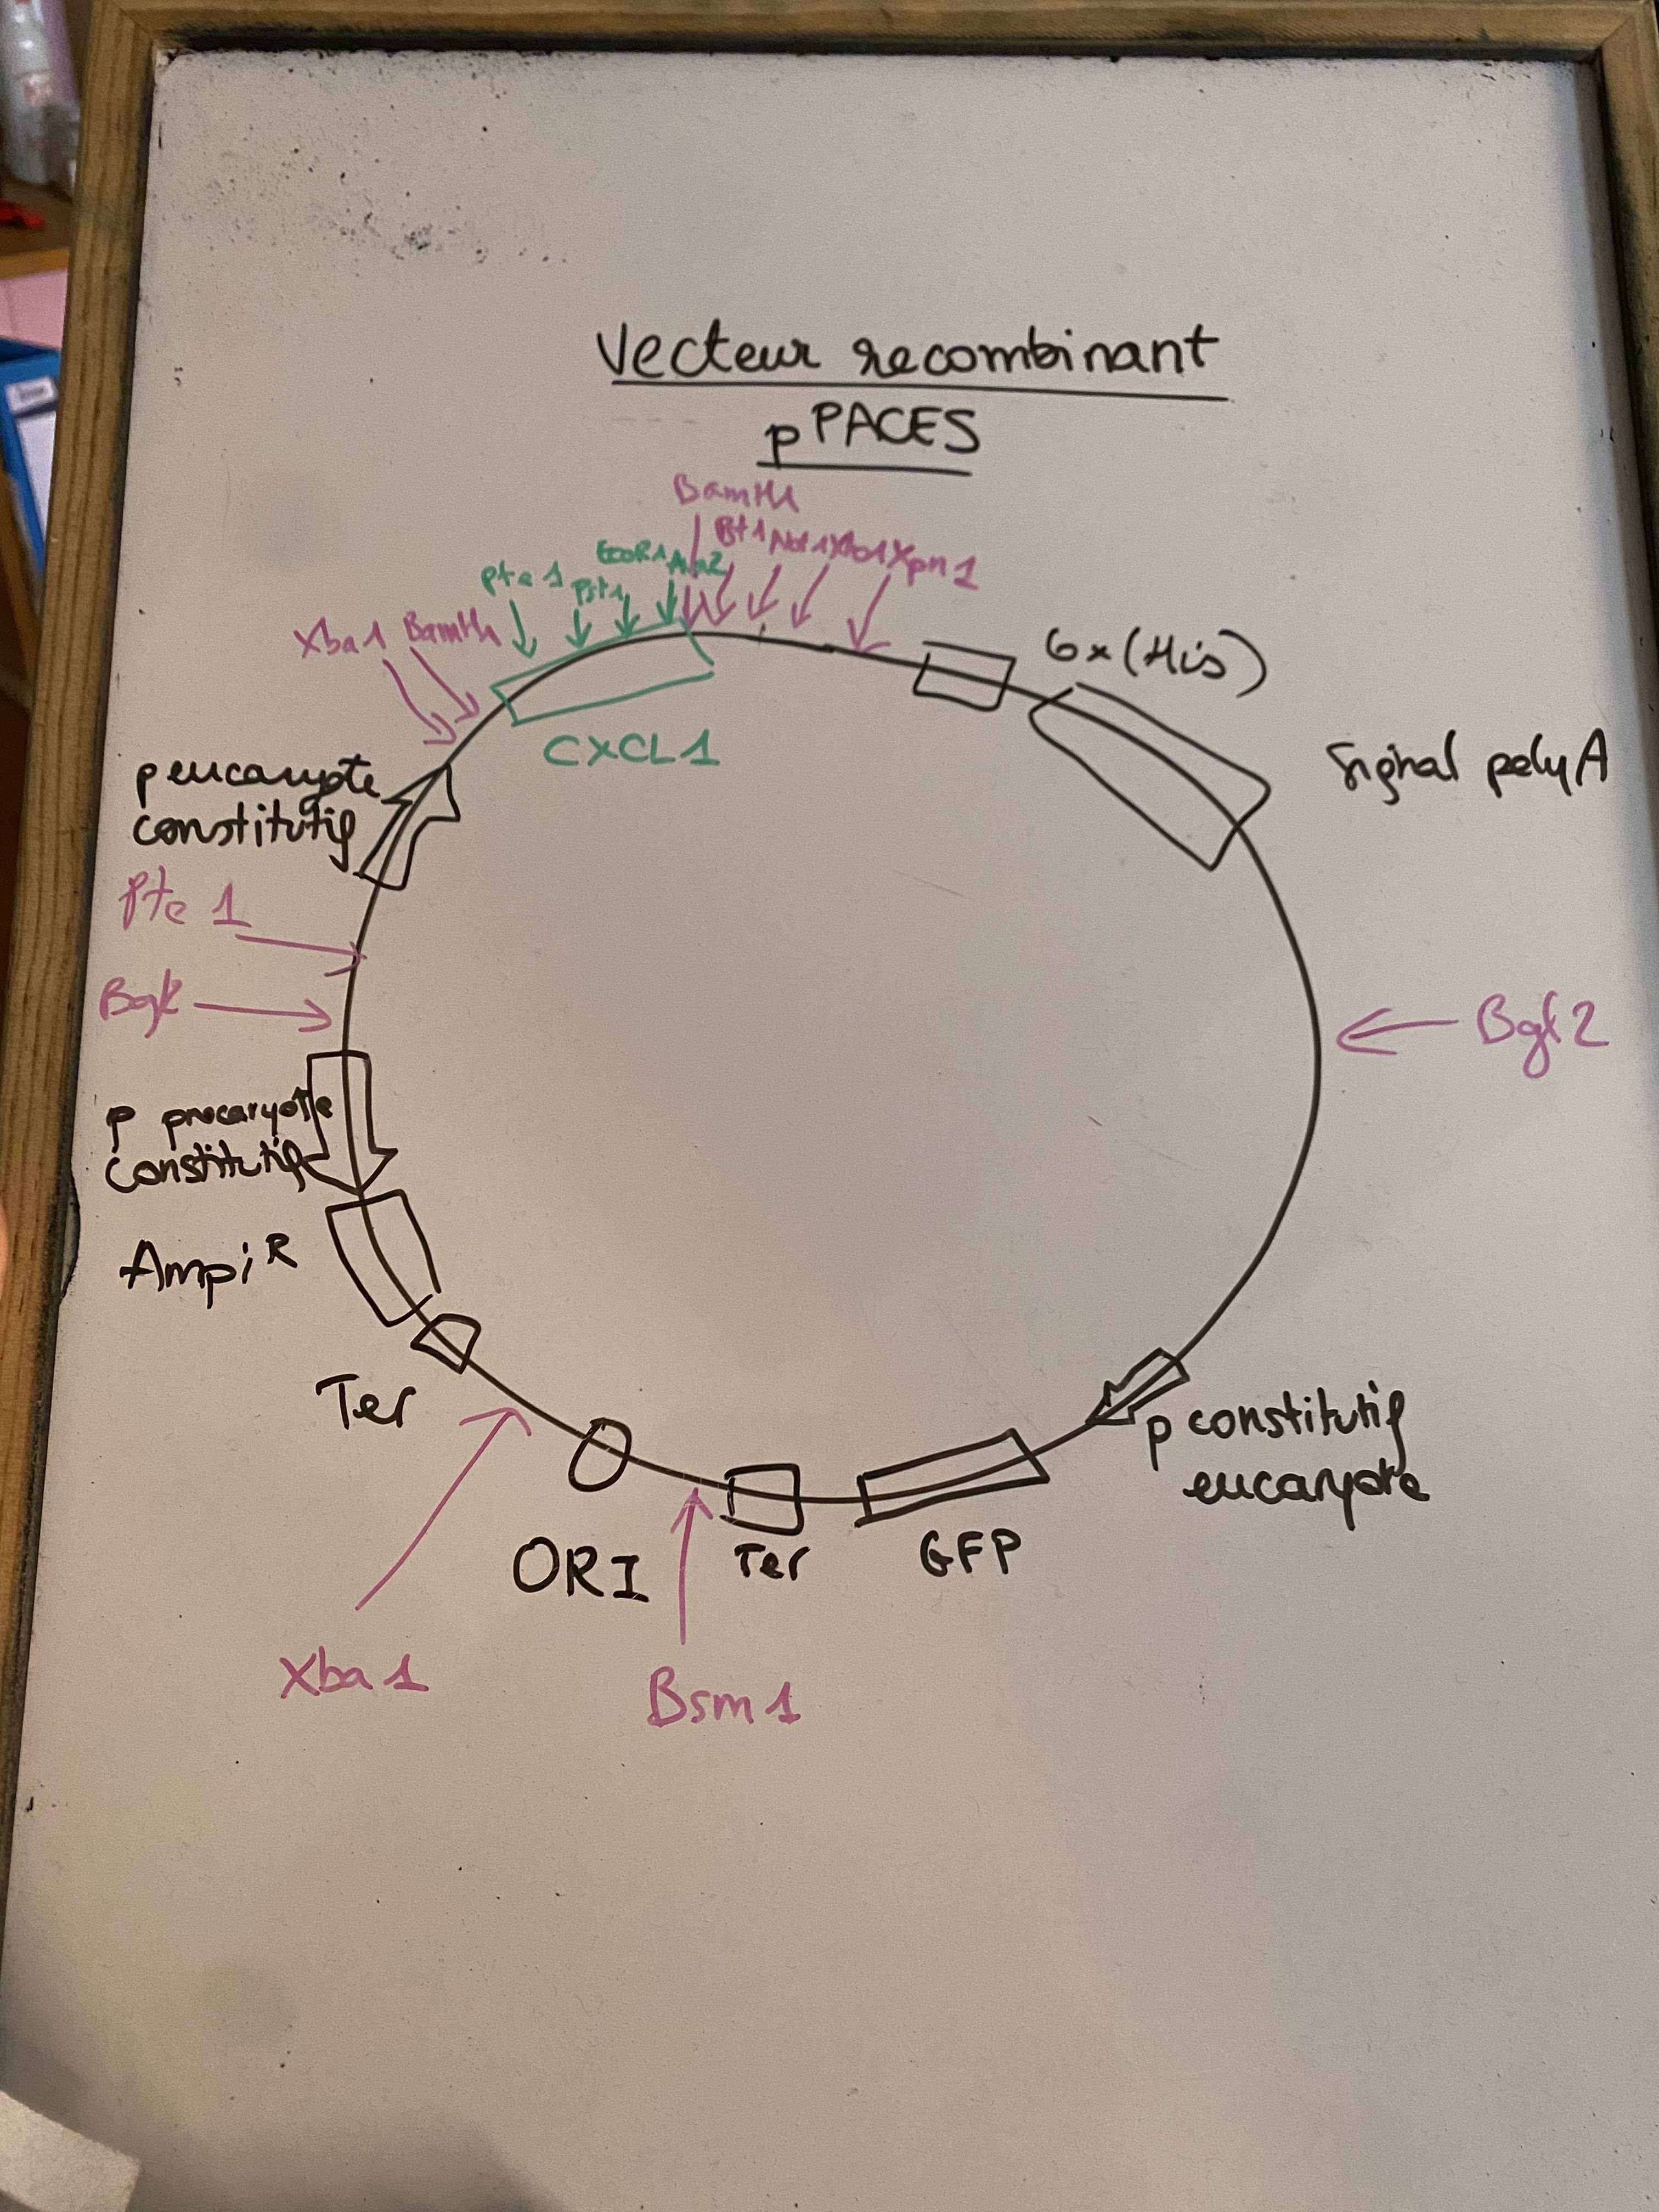 Vecteur recombinant
pPACES
BamH1
Not1
Xpn1
EcoR1
pte 1
Pst1
Xba1
BamH1
6x(His)
CXCL1
Signal polyA
p eucaryote
constitutif
Pte 1
Bgl2
p procaryote
constitutif
Ampi R
Ter
p constitutif
eucaryote
ORI
Ter
GFP
Xba1
Bsm1